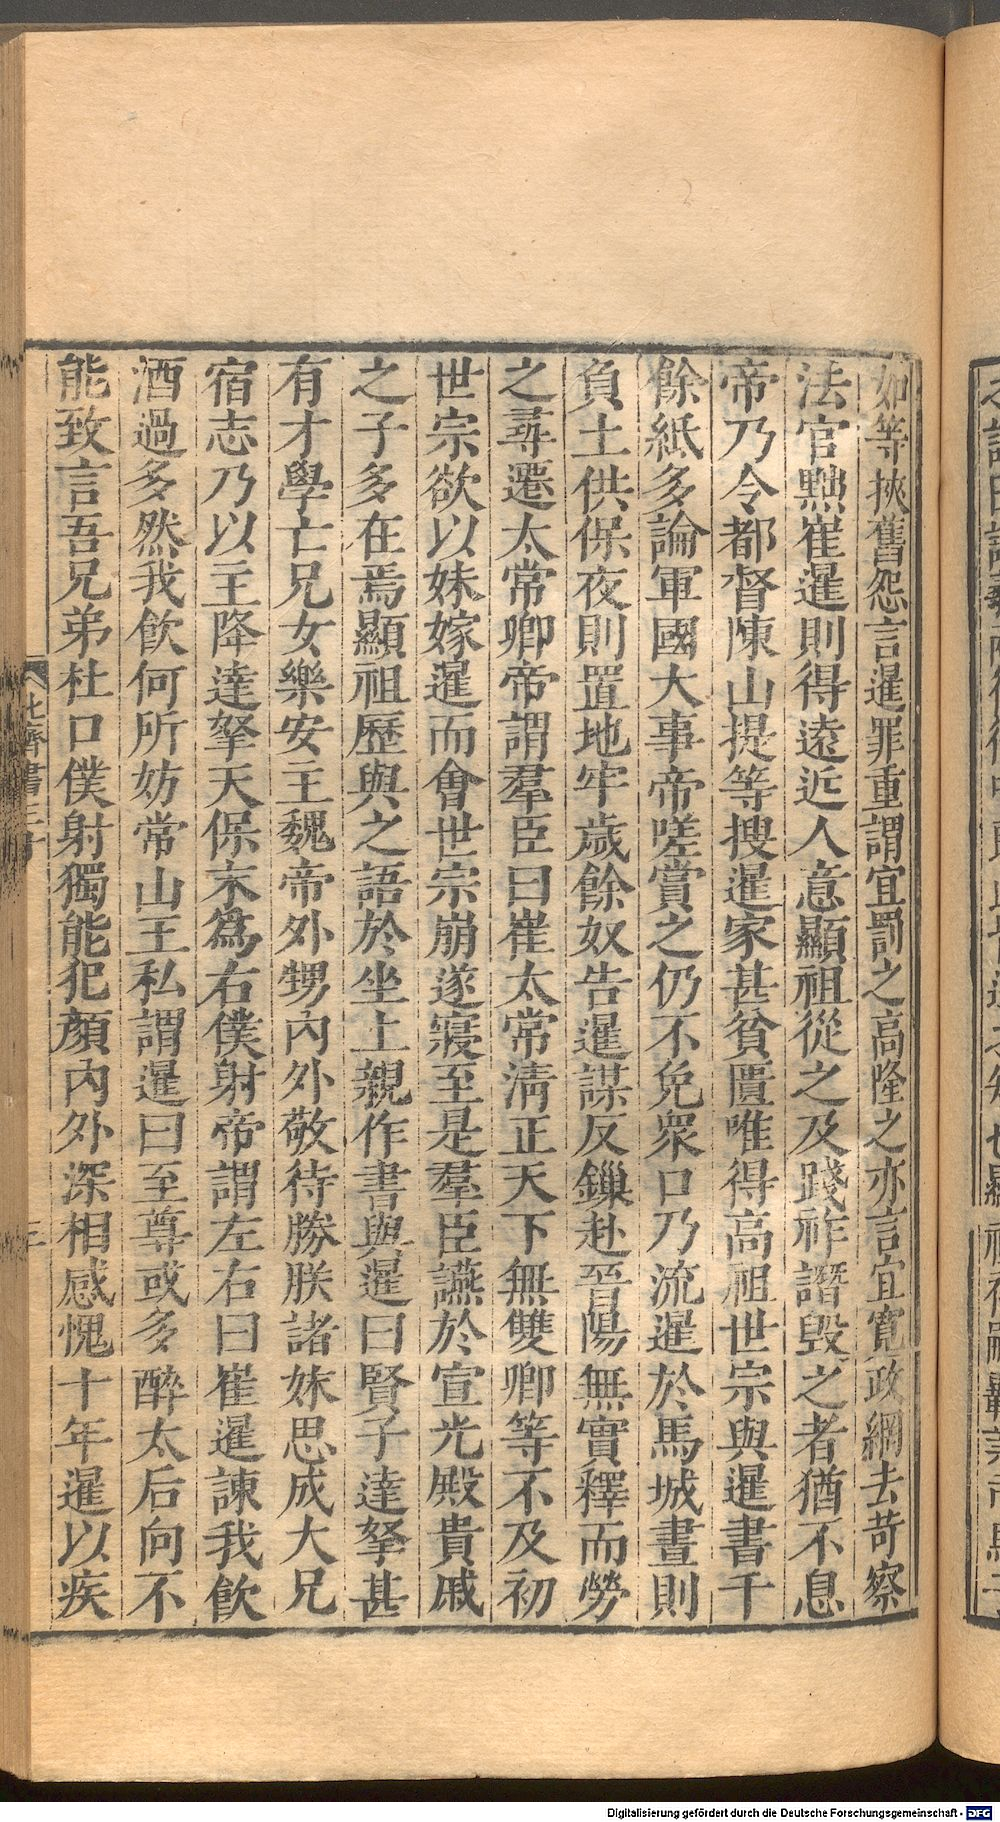 如等挾舊怨言暹罪重謂宜罰之高隆之亦言宜寬政網去苛察
法官黜崔暹則得遠近人意顯祖從之及踐祚譖毀之者猶不息
帝乃令都督陳山提等搜暹家甚貧匱唯得高祖世宗與暹書千
餘紙多論軍國大事帝嗟賞之仍不免衆口乃流暹於馬城晝則
負土供保夜則置地牢歲餘奴告暹謀反鏁赴晉陽無實釋而勞
之尋遷太常卿帝謂羣臣曰崔太常淸正天下無雙卿等不及初
世宗欲以妹嫁暹而會世宗崩遂寢至是羣臣讌於宣光殿貴戚
之子多在焉顯祖歷與之語於坐上親作書與暹曰賢子達拏甚
有才學亡兄女樂安主魏帝外甥內外敬待勝朕諸妹思成大兄
宿志乃以主降達拏天保末爲右僕射帝謂左右曰崔暹諫我飮
酒過多然我飮何所妨常山王私謂暹曰至尊或多醉太后向不
能致言吾兄弟杜口僕射獨能犯顏內外深相感愧十年暹以疾
北齊書三十
三
Digitalisierung gefördert durch die Deutsche Forschungsgemeinschaft - DFG